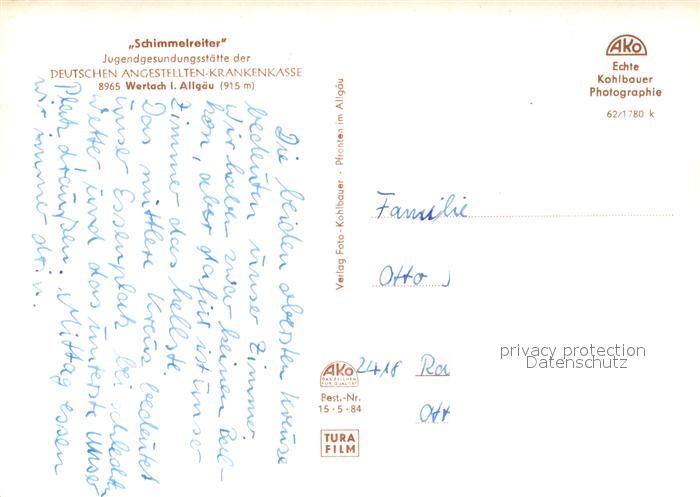 „Schimmelreiter"
Jugendgesundungsstätte der
DEUTSCHEN ANGESTELLTEN-KRANKENKASSE
8965 Wertach i. Allgäu (915 m)
Die beiden obersten Kreuze
bedeuten unser Zimmer.
Wir haben zwar keinen Bal-
kon, aber dafür ist unser
Zimmer das hellste.
Das mittlere Kreuz bedeutet
unser Essenplatz bei schlechten
Wetter, und das unterste unser
Platz draußen. Mittag essen
wir immer dr.
Verlag Foto-Kohlbauer · Pfronten im Allgäu
AKO
Echte
Kohlbauer
Photographie
62/1780 k
Familie
Otto
2418 Ra
Ott
AKO
DAS ZEICHEN
FÜR QUALITÄT
Best.-Nr.
15·5·84
TURA
FILM
privacy protection
Datenschutz